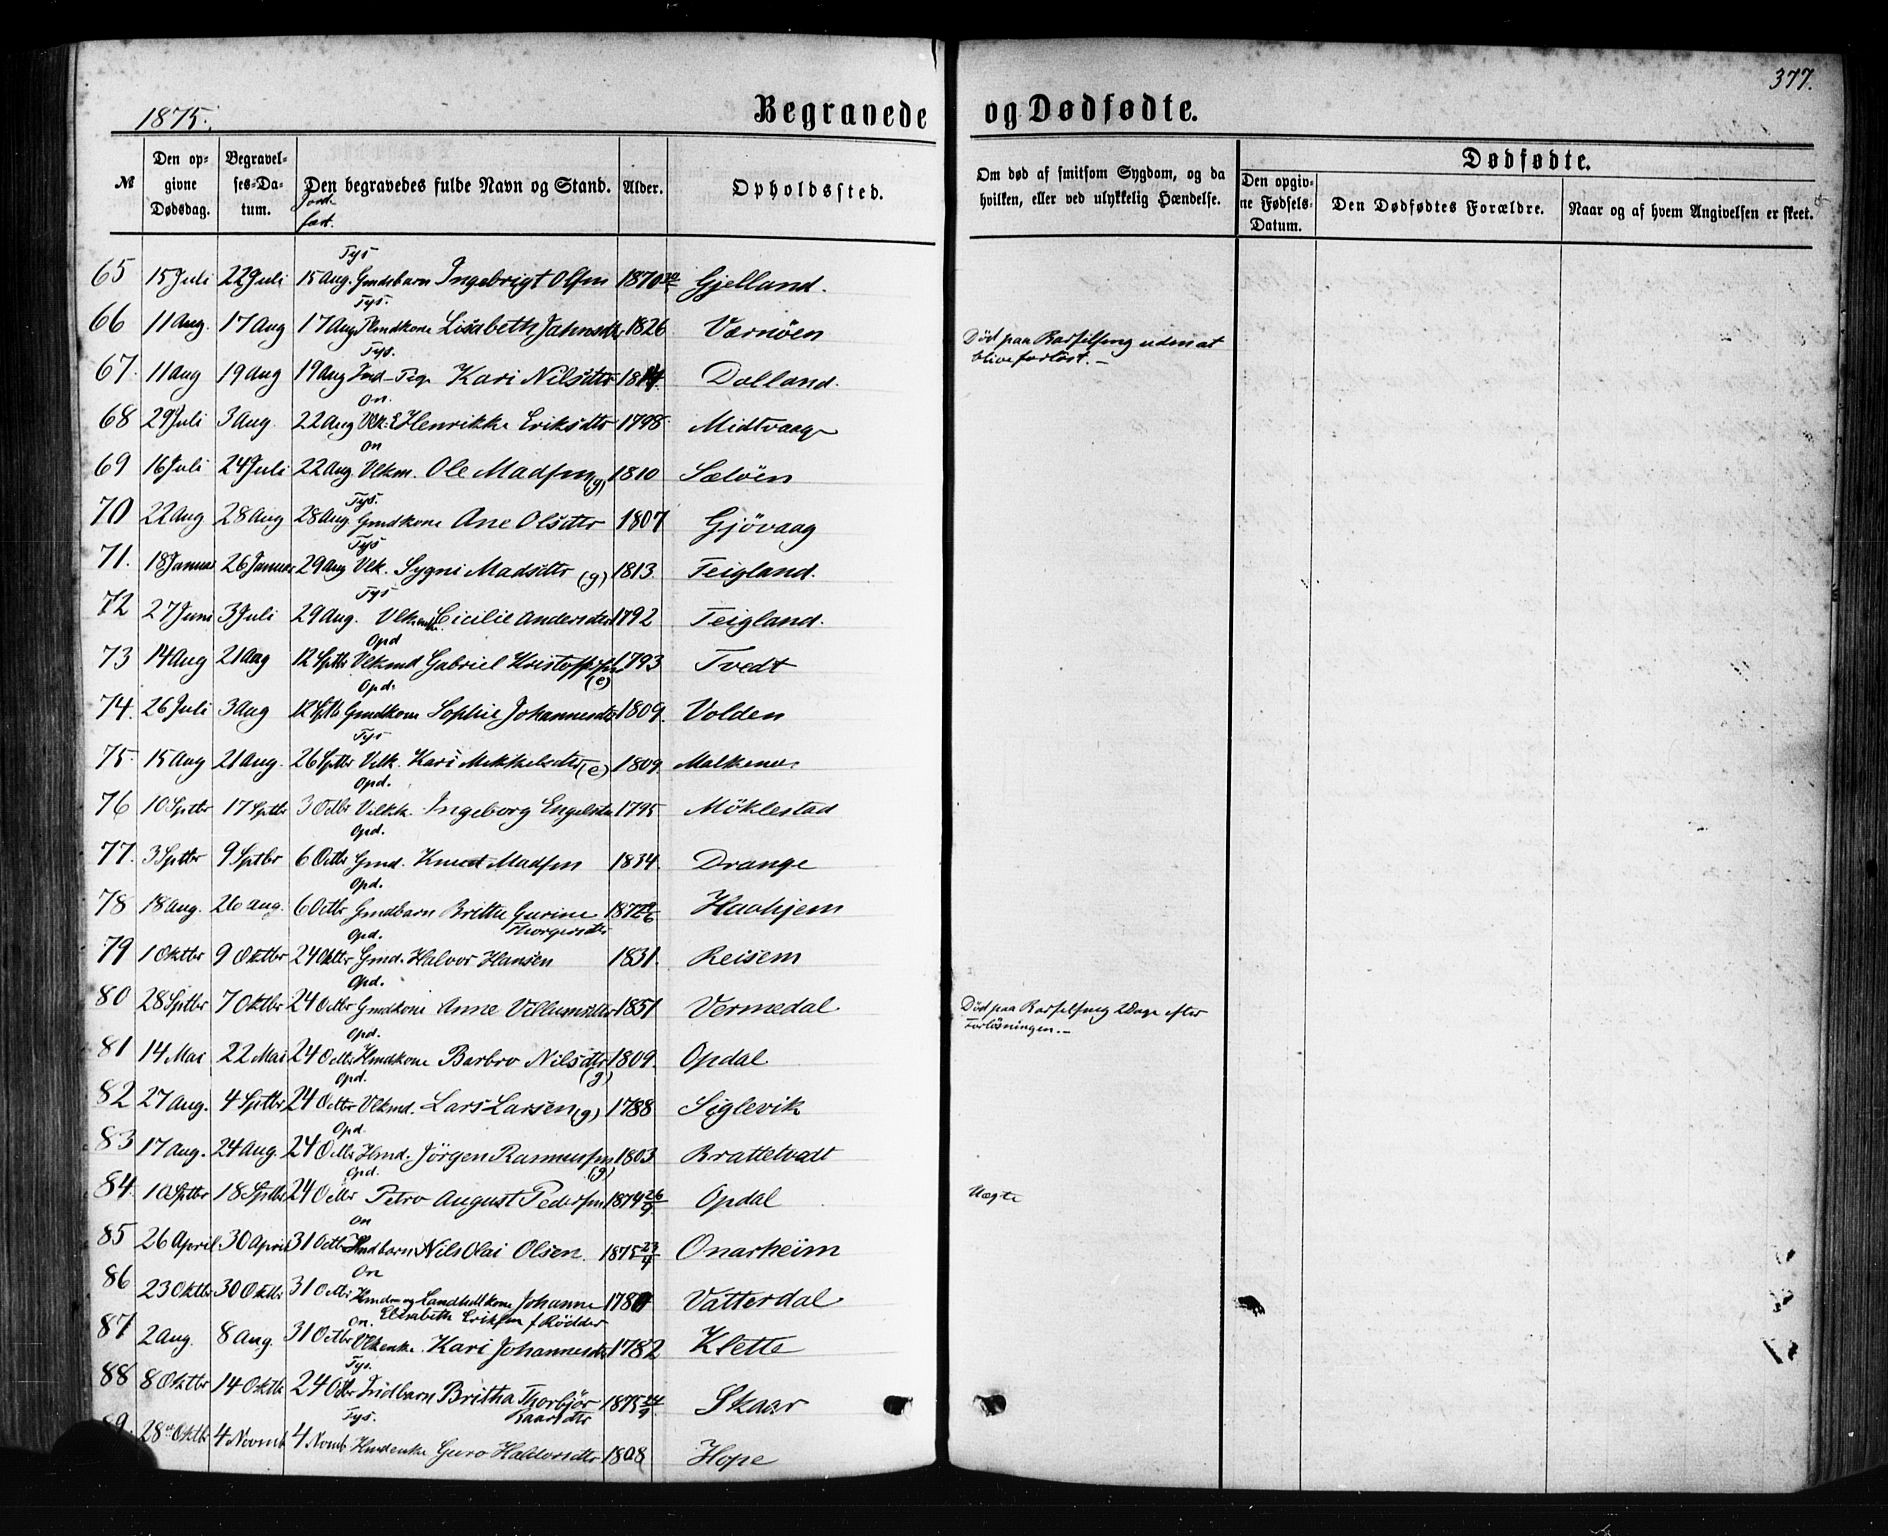 377.
1875.
Begravede og Dødfødte.
№
Den opgivne Dødsdag.
Begravelses-Datum.
Den begravedes fulde Navn og Stand.
Jordfæst.
Alder.
Opholdssted.
Om død af smitsom Sygdom, og da hvilken, eller ved ulykkelig Hændelse.
Dødfødte.
Den opgivne Fødsels-Datum.
Den Dødfødtes Forældre.
Naar og af hvem Angivelsen er skeet.
Tys
65 15 Juli 22 Juli 15 Aug. Gmdsbarn Ingebrigt Olsen 1870 Gjelland.
Tys.
66 11 Aug. 17 Aug 17 Aug Lisabeth Jahnsdtr 1826 Værnöen Död paa Barselseng uden at blive forlöst. –
Tys.
67. 11 Aug 19 Aug 19 Aug Ind-Pige Kari Nilsdtr Dalland.
On.
68 29 Juli 3 Aug. 22 Aug Henrikke Eriksdtr 1798 Midtvaage
On
69 16 Juli 24 Juli 22 Aug. Vlkm. Ole Madsen (g) 1810 Sælöen
Tys.
70 22 Aug 28 Aug 28 Aug. Gmdkone Ane Olsdtr 1807 Gjövaag
Tys
71. 18 Januar 26 Januar 29 Aug Vlk. Sygni Madsdtr (g) 1813. Teigland.
Tys
72 27 Juni 3 Juli 29 Aug. Vlkenke Cicilie Andersdtr 1792 Teigland.
Opd
73 14 Aug 21 Aug 12 Sptbr Vlkmd Gabriel Kristoffersen (e) 1793 Tvedt
Opd.
74. 26 Juli 3 Aug 12 Sptb Gmdkone Sophie Johannesdtr 1809. Volden
Tys
75. 15 Aug 21 Aug. 26 Sptbr Vlk. Kari Mikkelsdtr (e) 1809. Malkenes
Opd.
76 10 Sptbr 17 Sptbr 3 Octbr Vlkk. Ingeborg Engelsdtr 1795 Möklestad
Opd.
77. 3 Sptbr 9 Sptbr 6 Octbr Gmd. Knud Madsen 1834. Drange
Opd.
78 18 Aug. 26 Aug. 6 Octbr Gmdbarn Britha Gurine Thorgersdtr Hauhjem
Opd.
79 1 Oktbr 9 Oktbr 24 Oktbr Gmd. Halvor Hansen 1831. Reisem
Opd.
80 28 Sptbr 7 Oktbr 24 Octbr Gmdkone Anne Villumsdtr 1851 Vermedal Död paa Barselseng 2 Dage efter Forlösningen. –
Opd.
81 14 Mai 22 Mai 24 Octbr Hmdkone Barbro Nilsdtr (g) 1809. Opdal
Opd.
82 27 Aug. 4 Sptbr 24 Octbr Vlkmd. Lars Larsen (g) 1788 Siglevik
Opd.
83 17 Aug. 24 Aug. 24 Octbr Hmd. Jörgen Rasmussen (g) 1803 Brattetvedt
Opd.
84. 10 Sptbr 18 Sptbr 24 Octbr Petro August Pedersen 1874 26/9 Opdal Uægte
On
85 26 April 30 April 31 Octbr Indbarn Nils Olai Olsen. 1875 23/4 Onarheim
On
86 23 Oktbr 30 Oktbr 31 Octbr Johanne Elisabeth Eriksen f. Rödder Vatterdal
On.
87 2 Aug. 8 Aug. 31 Octbr Vlkenke. Kari Johannesdtr 1782 Klette
Tys.
88 8 Oktbr 14 Oktbr 24 Octbr Indbarn Britha Thorbjör Kaarsdtr 1875 24/9 Skaar
Tys.
89. 28 Oktbr 4 Novmb. 4 Novmb Hmdenke Guro Haldorsdtr 1808 Hope